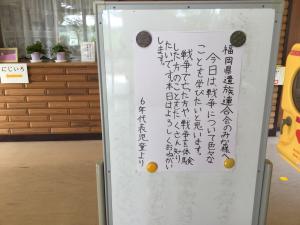 福岡県遺族連合会のみな様へ
今日は戦争について色々な
ことを学びたいと思います。
戦争で亡った方や戦争を体験
した方々のことをたくさん知り
たいです。本日はよろしくおねがい
します。
6年代表児童より
にじいろ